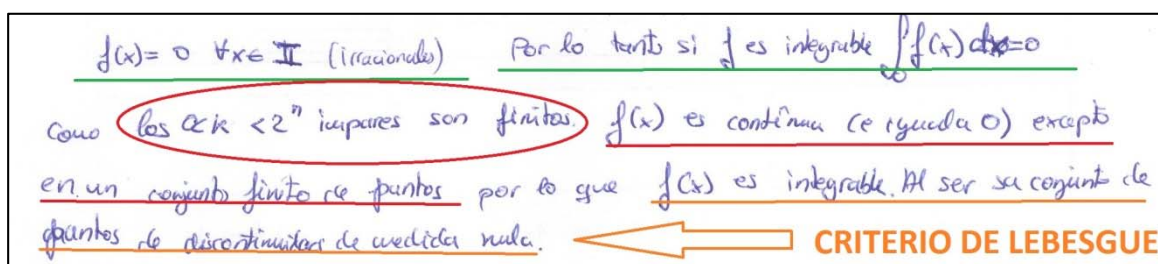 f(x) = 0 ∀x∈ II (irracionales) Por lo tanto si f es integrable ∫f(x) dx=0
Como los 0<k<2ⁿ impares son finitos. f(x) es continua (e iguala 0) excepto
en un conjunto finito de puntos por lo que f(x) es integrable. Al ser su conjunto de
puntos de discontinuidad de medida nula. CRITERIO DE LEBESGUE